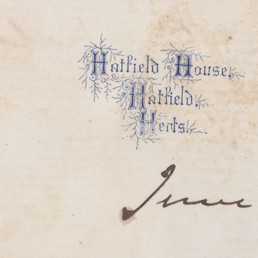 Hatfield House,
Hatfield,
Herts.
June